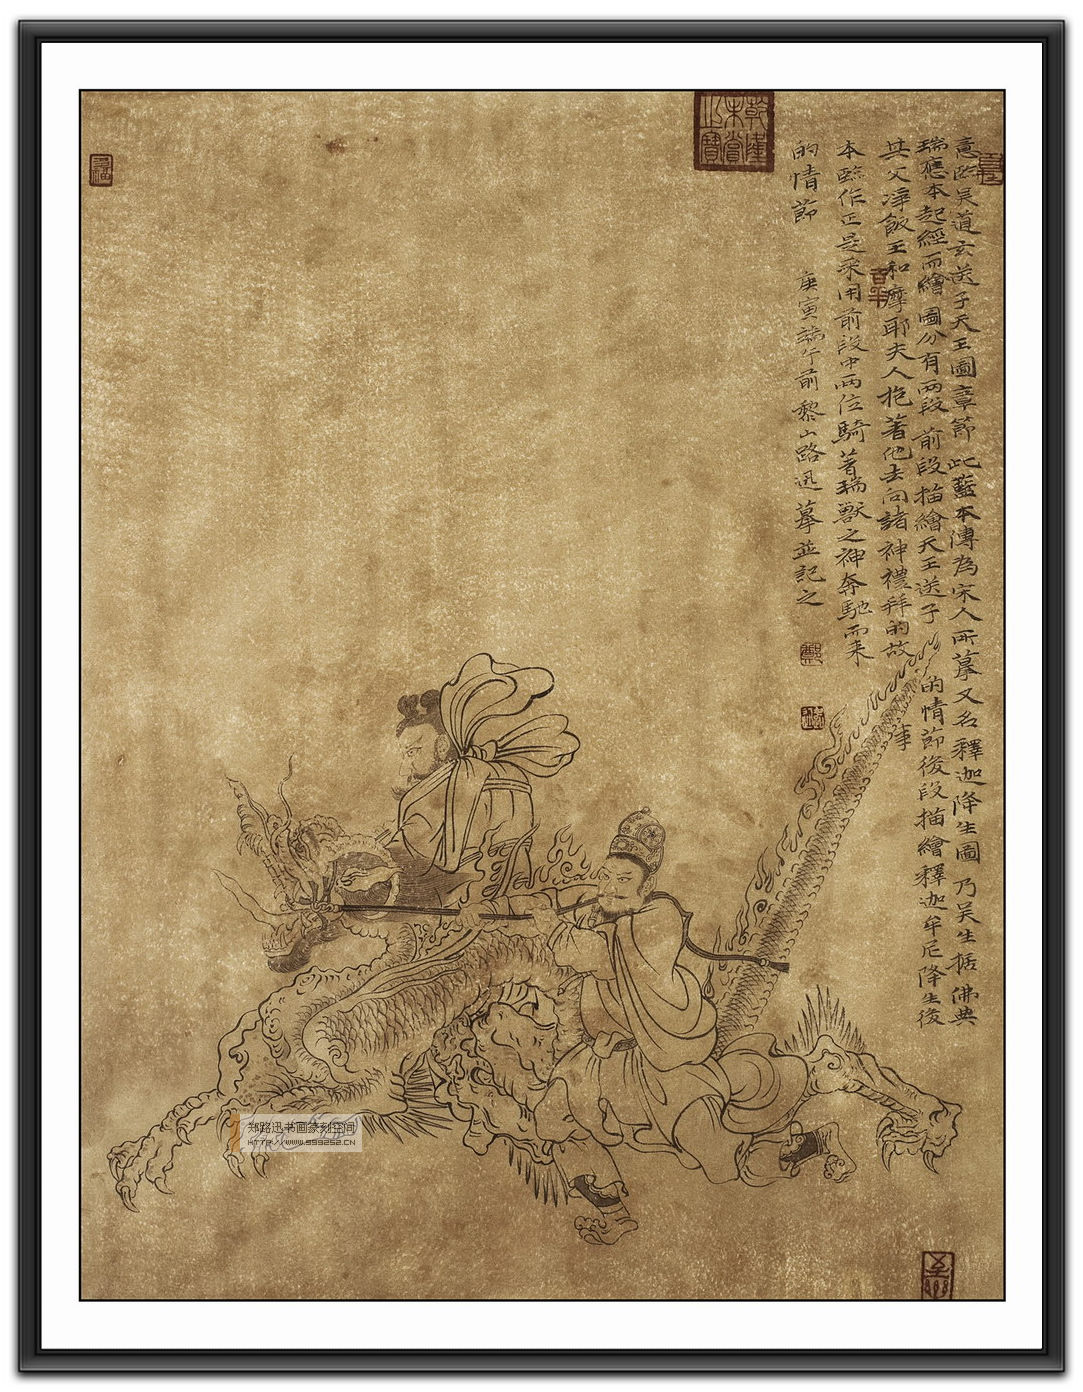 意臨吳道玄送子天王圖章節此藍本傳為宋人所摹又名釋迦降生圖乃吳生括佛典
瑞應本起經而繪圖分有兩段前段描繪天王送子的情節後段描繪釋迦牟尼降生後
其父淨飯王和摩耶夫人抱著他去向諸神禮拜的故事
本臨作正是采用前段中兩位騎著瑞獸之神奔馳而来
的情節
庚寅端午前黎山路迅摹並記之
郑路迅书画篆刻空间
HTTP://WWW.999252.CN